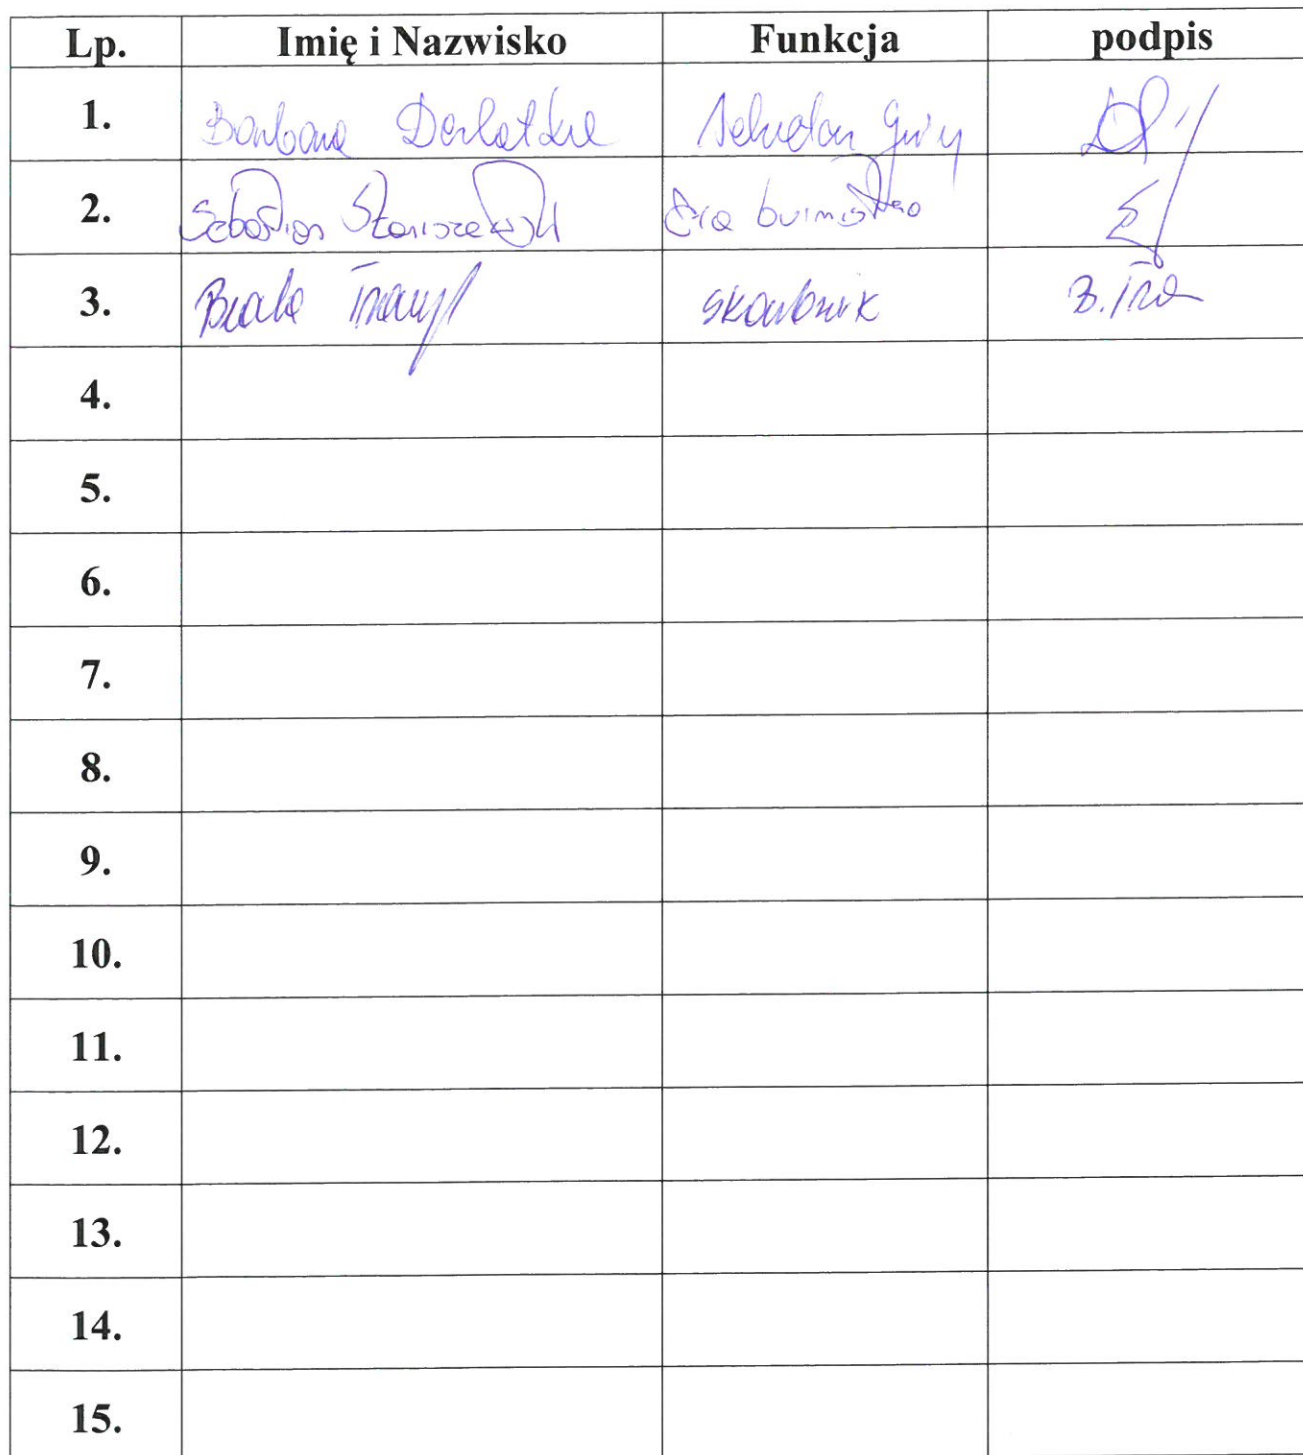 Lp. Imię i Nazwisko Funkcja podpis
1. Barbara Derlatka Sekretarz Gminy
2. Sebastian Staniszewski
3. Beata skarbnik
4.
5.
6.
7.
8.
9.
10.
11.
12.
13.
14.
15.